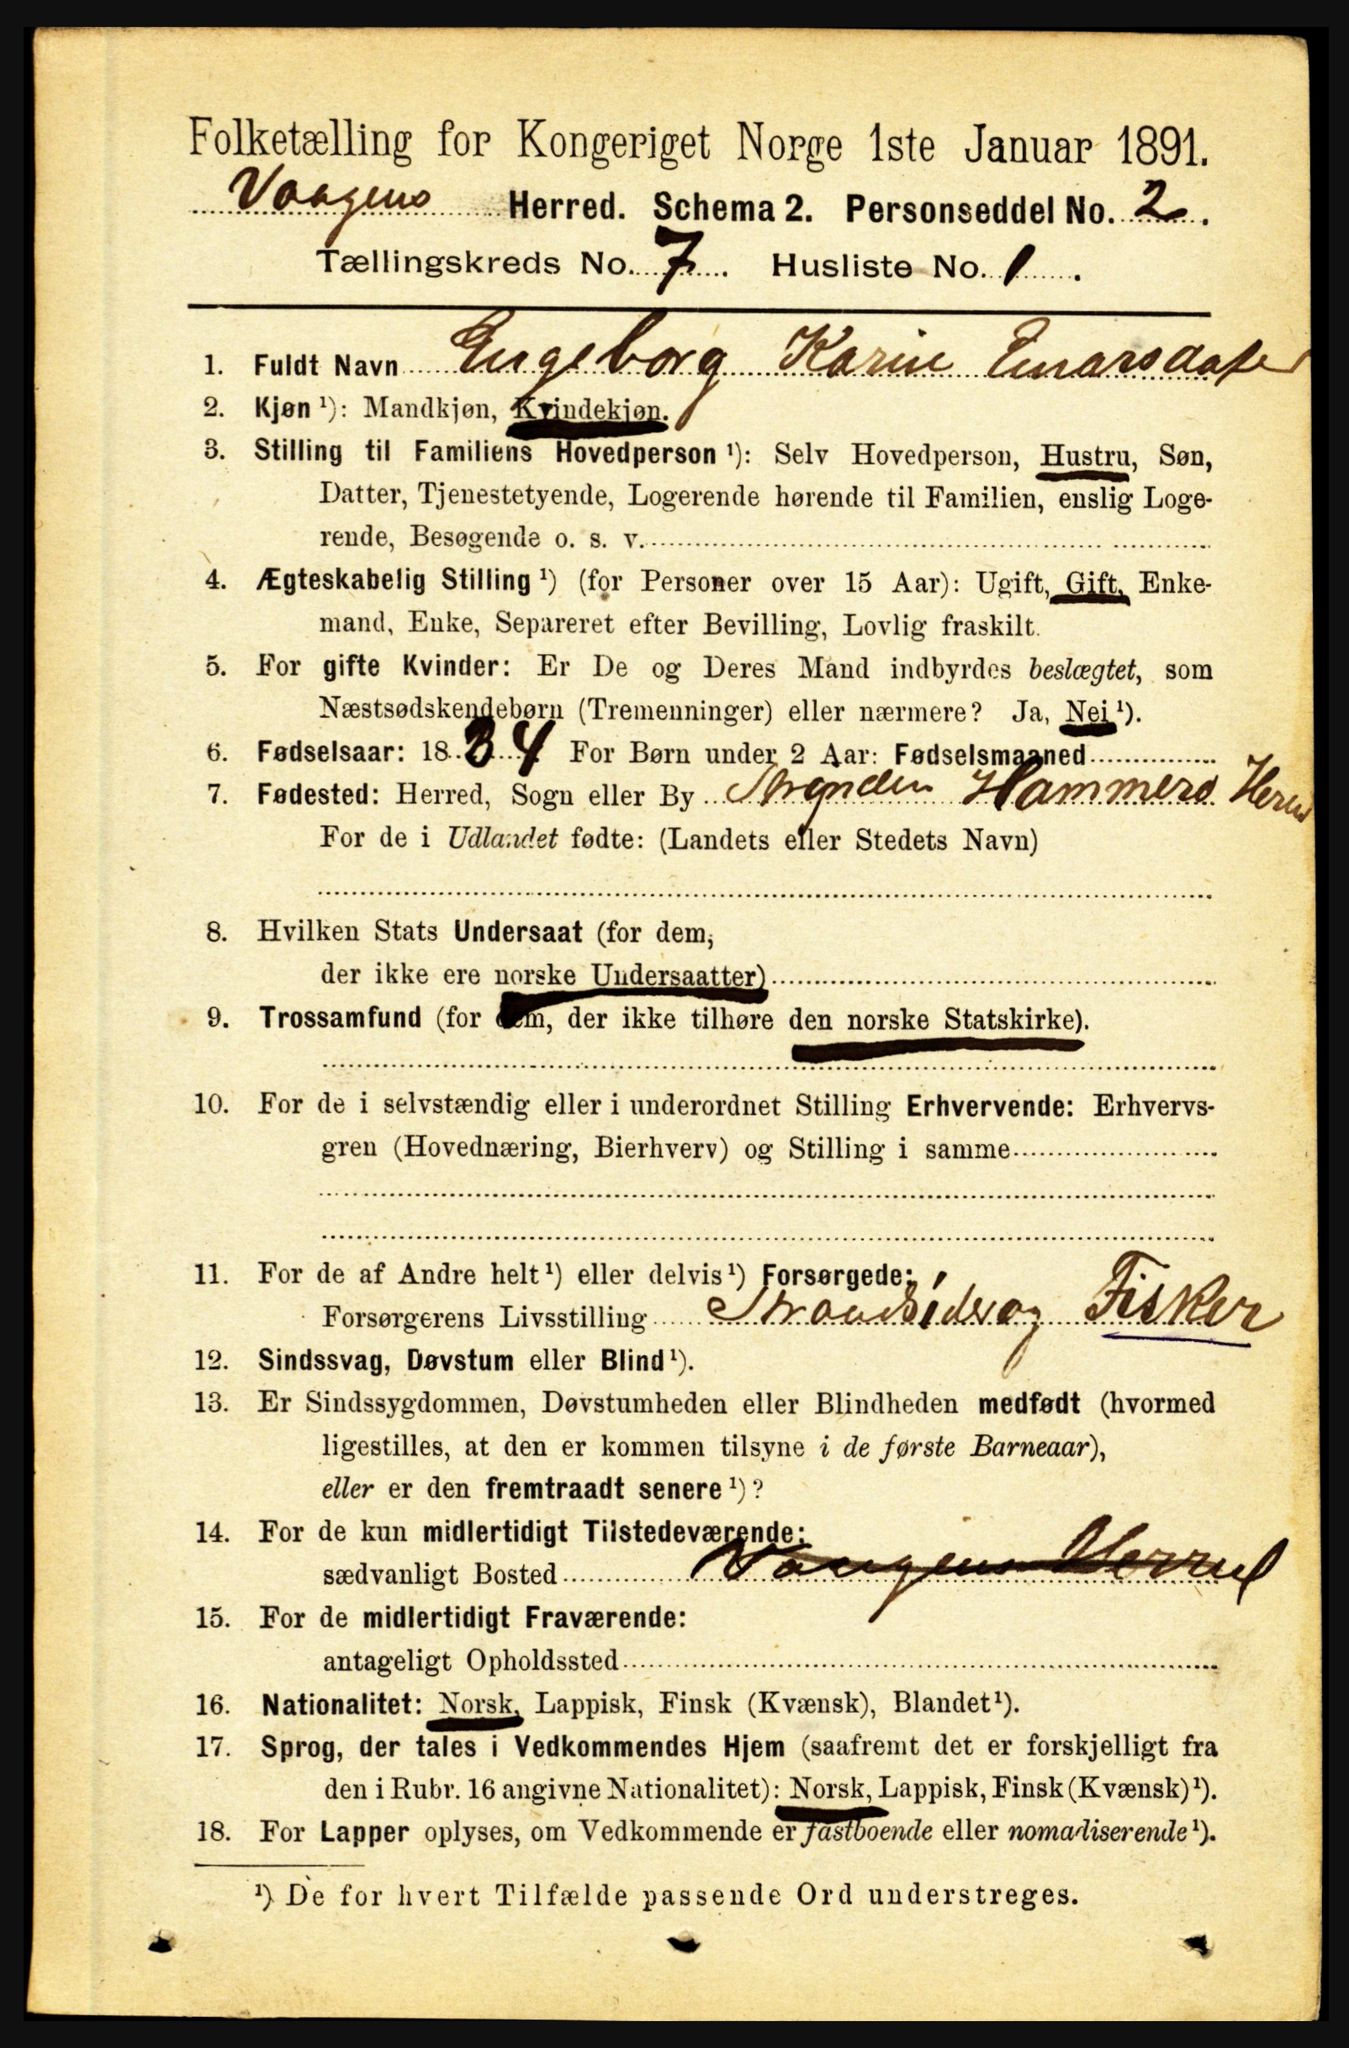 Folketælling for Kongeriget Norge 1ste Januar 1891.
Vaagens Herred. Schema 2. Personseddel No. 2.
Tællingskreds No. 7. Husliste No. 1.
1. Fuldt Navn Engeborg Karine Enarsdater
2. Kjøn ¹): Mandkjøn, Kvindekjøn.
3. Stilling til Familiens Hovedperson ¹): Selv Hovedperson, Hustru, Søn,
Datter, Tjenestetyende, Logerende hørende til Familien, enslig Loge-
rende, Besøgende o. s. v.
4. Ægteskabelig Stilling ¹) (for Personer over 15 Aar): Ugift, Gift, Enke-
mand, Enke, Separeret efter Bevilling, Lovlig fraskilt.
5. For gifte Kvinder: Er De og Deres Mand indbyrdes beslægtet, som
Næstsødskendebørn (Tremenninger) eller nærmere? Ja, Nei ¹).
6. Fødselsaar: 1834 For Børn under 2 Aar: Fødselsmaaned
7. Fødested: Herred, Sogn eller By Hammers Herred
For de i Udlandet fødte: (Landets eller Stedets Navn)
8. Hvilken Stats Undersaat (for dem,
der ikke ere norske Undersaatter)
9. Trossamfund (for dem, der ikke tilhøre den norske Statskirke).
10. For de i selvstændig eller i underordnet Stilling Erhvervende: Erhvervs-
gren (Hovednæring, Bierhverv) og Stilling i samme
11. For de af Andre helt ¹) eller delvis ¹) Forsørgede:
Forsørgerens Livsstilling Strandsider og Fisker
12. Sindssvag, Døvstum eller Blind ¹).
13. Er Sindssygdommen, Døvstumheden eller Blindheden medfødt (hvormed
ligestilles, at den er kommen tilsyne i de første Barneaar),
eller er den fremtraadt senere ¹)?
14. For de kun midlertidigt Tilstedeværende:
sædvanligt Bosted Vaagens Herred
15. For de midlertidigt Fraværende:
antageligt Opholdssted
16. Nationalitet: Norsk, Lappisk, Finsk (Kvænsk), Blandet ¹).
17. Sprog, der tales i Vedkommendes Hjem (saafremt det er forskjelligt fra
den i Rubr. 16 angivne Nationalitet): Norsk, Lappisk, Finsk (Kvænsk) ¹).
18. For Lapper oplyses, om Vedkommende er fastboende eller nomadiserende ¹).
¹) De for hvert Tilfælde passende Ord understreges.